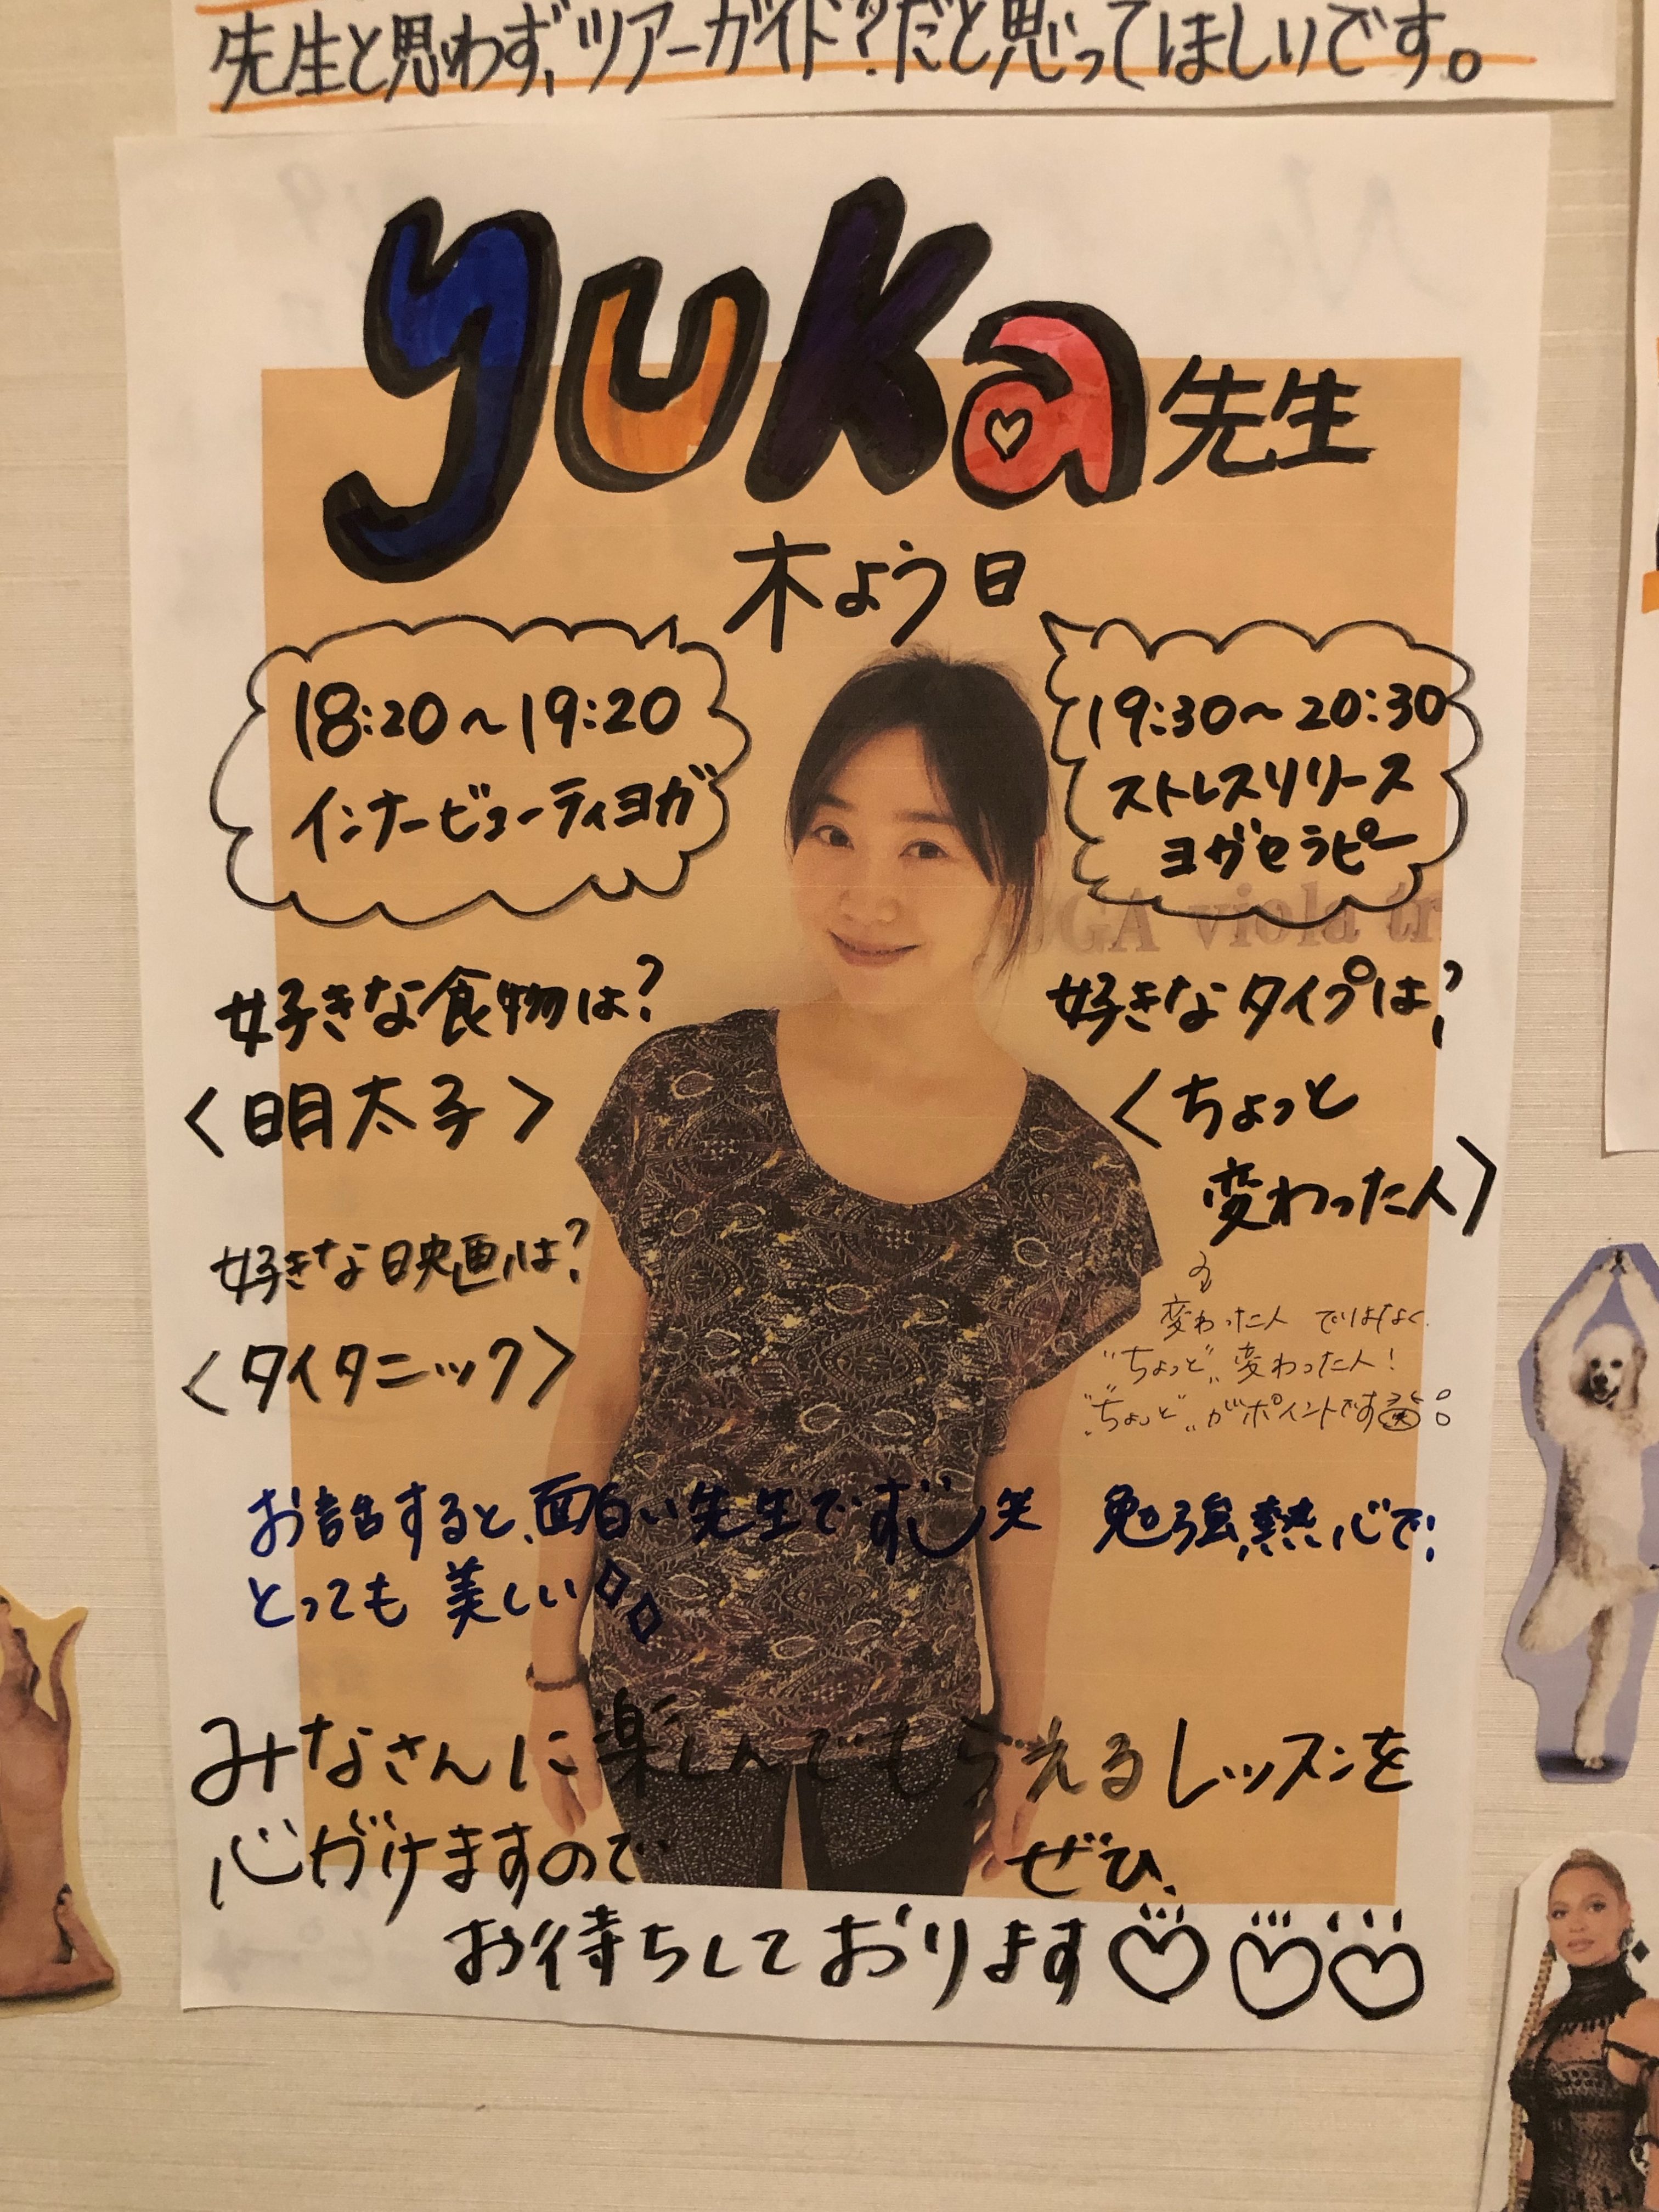 先生と思わず、ツアーガイド?だと思ってほしいです。
yuka先生
木よう日
18:20～19:20
インナービューティヨガ
19:30～20:30
ストレスリリース
ヨガセラピー
OGA viola tr
好きな食物は?
〈明太子〉
好きな映画は?
〈タイタニック〉
好きなタイプは?
〈ちょっと
変わった人〉
変わった人 ではなく
"ちょっと"変わった人!
"ちょっと"がポイントです
お話すると、面白い先生です 笑 勉強熱心で!
とっても 美しい
みなさんに楽しんでもらえるレッスンを
心がけますので ぜひ、
お待ちしております♡♡♡